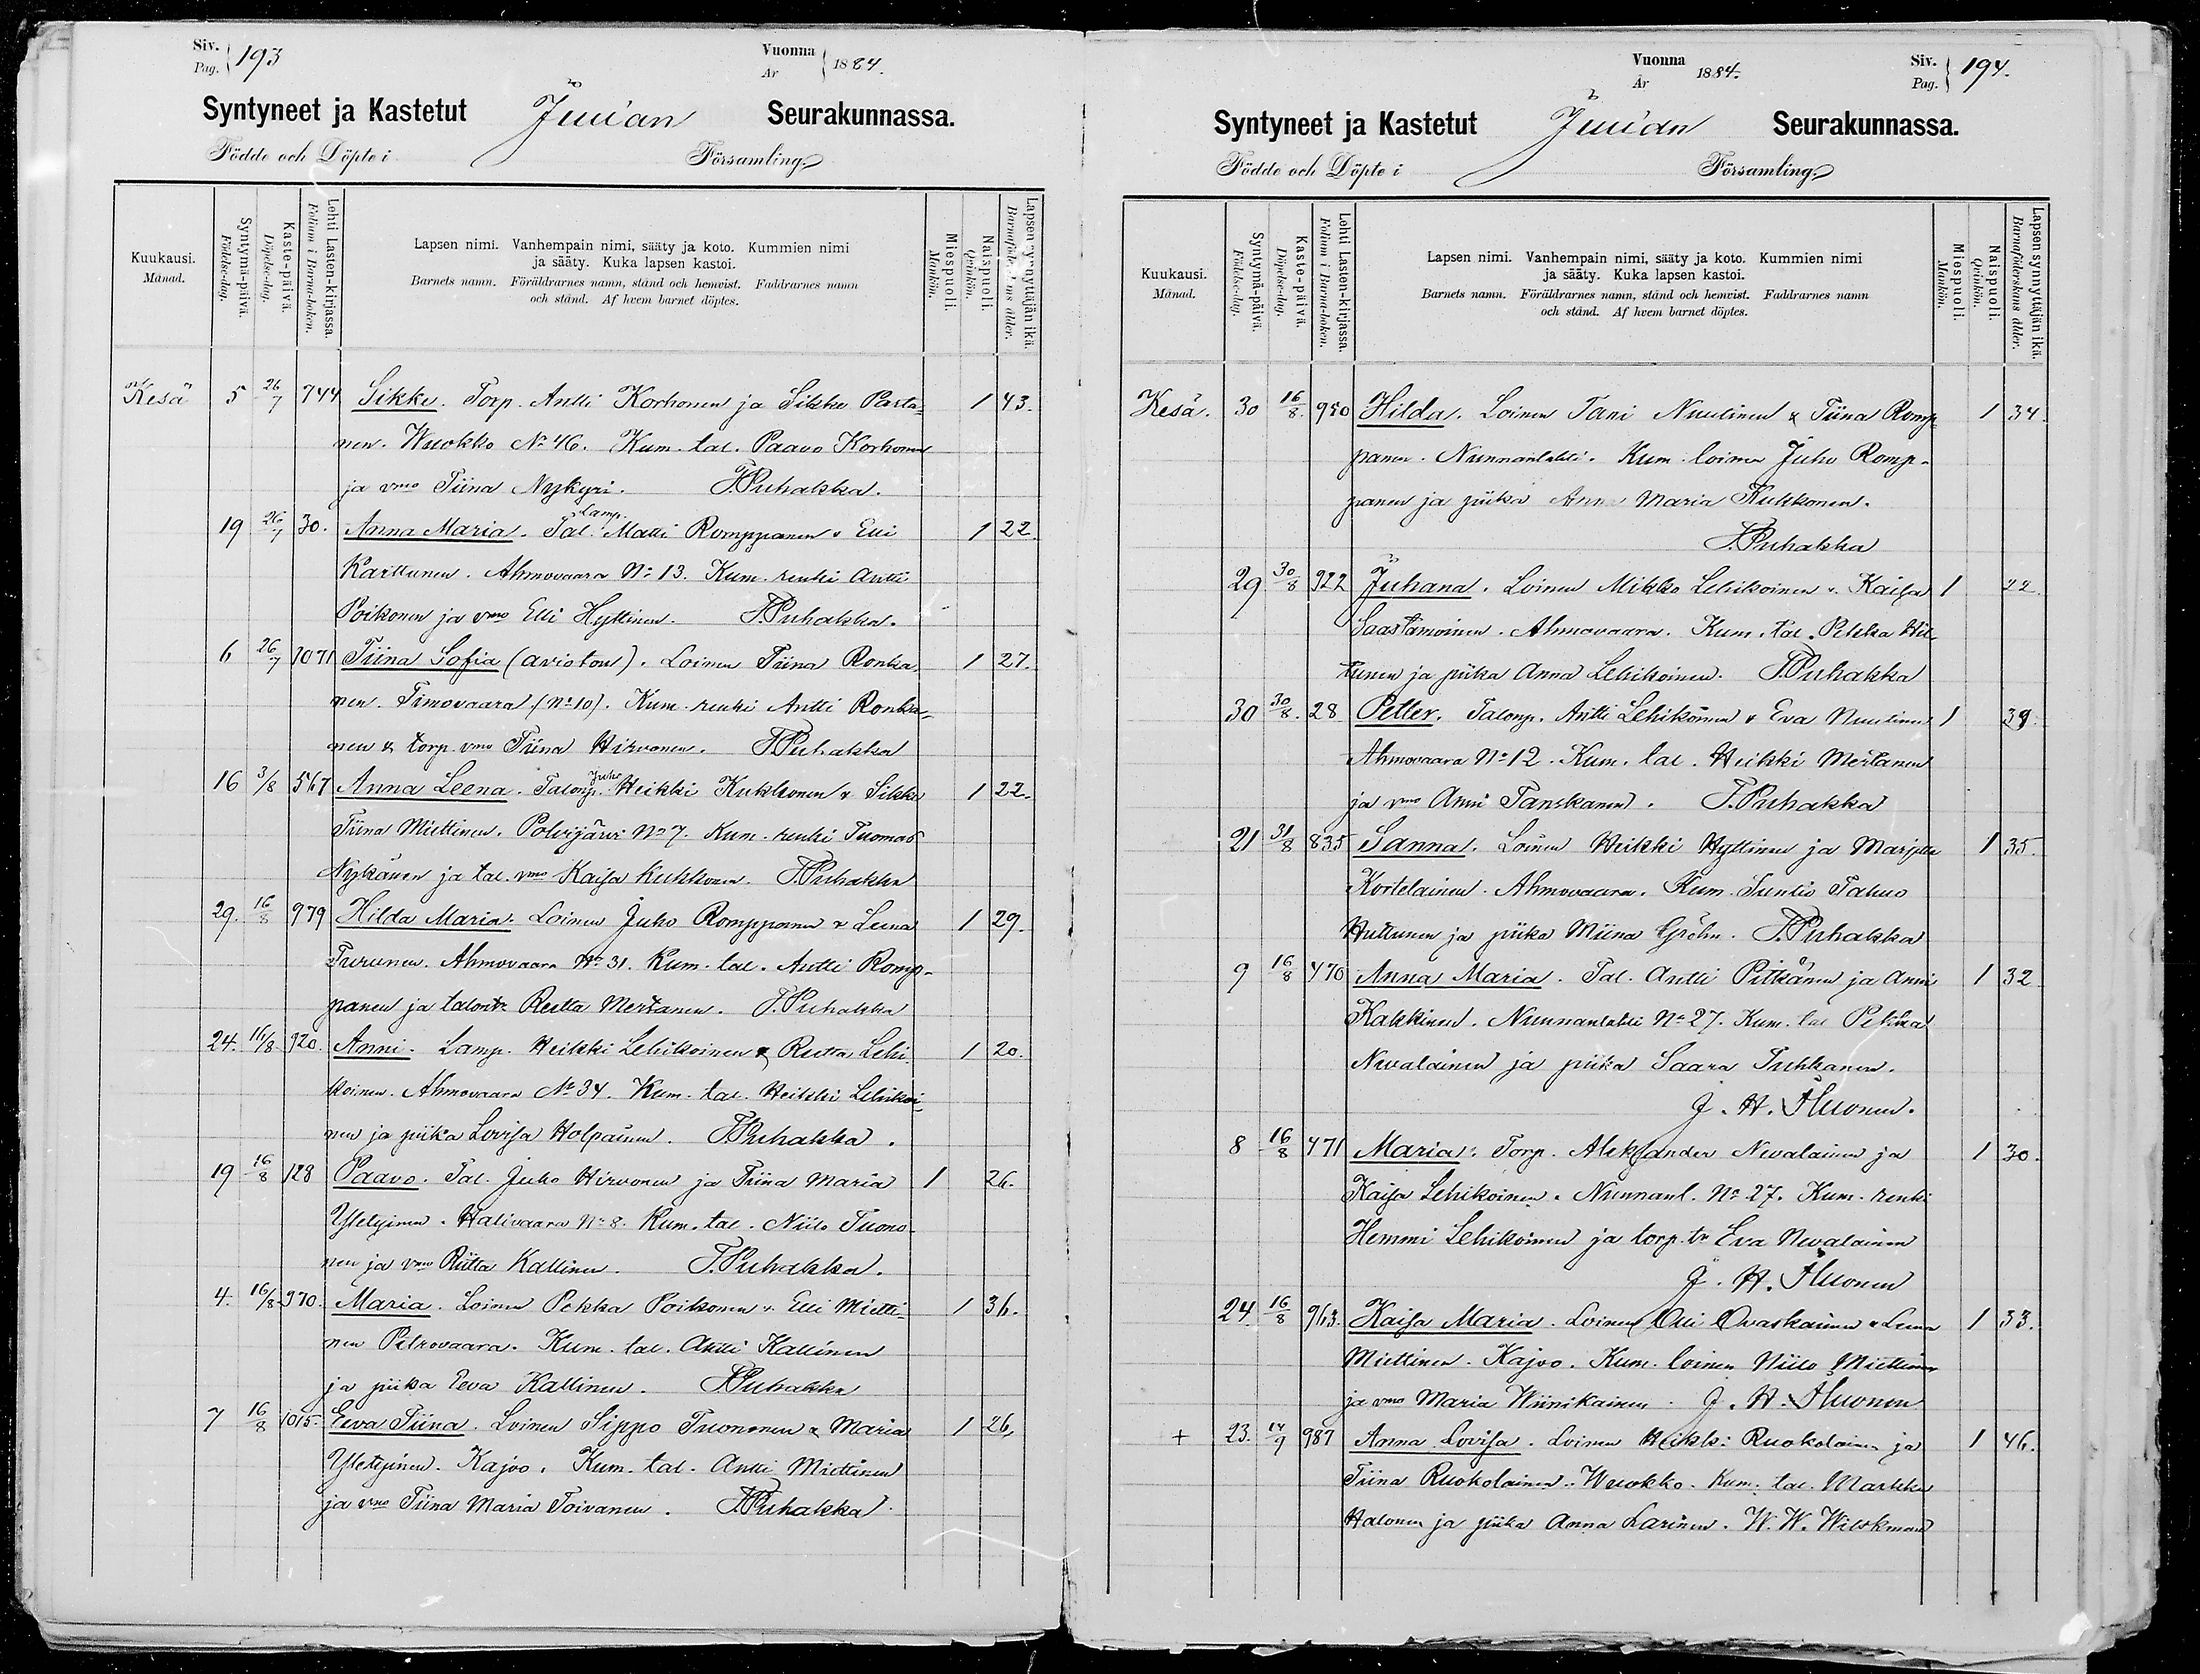 Siv.
Pag. 193
Vuonna
År 1884.
Syntyneet ja Kastetut Juuan Seurakunnassa.
Födde och Döpte i Församling.
Kuukausi.
Månad.
Syntymä-päivä.
Födelse-dag.
Kaste-päivä.
Döpelse-dag.
Lehti Lasten-kirjassa.
Folium i Barna-boken.
Lapsen nimi. Vanhempain nimi, sääty ja koto. Kummien nimi
ja sääty. Kuka lapsen kastoi.
Barnets namn. Föräldrarnes namn, stånd och hemvist. Faddrarnes namn
och stånd. Af hvem barnet döptes.
Miespuoli.
Mankön.
Naispuoli.
Qvinkön.
Lapsen synnyttäjän ikä.
Kesä 5 26/7 744 Sikke. Torp. Antti Korhonen ja Sikke Parta- 1 43.
nen. Wuokko No 46. Kum. tal. Paavo Korhonen
ja vmo Tiina Nykyri. T. Puhakka.
19 26/7 30. Anna Maria. Tal. Lamp. Matti Romppanen & Elli 1 22
Karttunen. Ahmovaara No 13. Kum. renki Antti
Poikonen ja vmo Elli Hyttinen. T. Puhakka.
6 26/7 1071 Tiina Sofia (avioton). Loinen Tiina Ronka- 1 27.
nen. Timovaara (No 10). Kum. renki Antti Ronka-
nen & torp. vmo Tiina Hirvonen. T. Puhakka
16 3/8 567 Anna Leena. Talonp. Juho Heikki Kukkonen & Sikke 1 22.
Tiina Miettinen. Polvijärvi No 7. Kum. renki Tuomas
Nykänen ja tal. vmo Kaisa Kukkonen. T. Puhakka
29. 16/8 979 Hilda Maria. Loinen Juho Romppanen & Leena 1 29.
Turunen. Ahmovaara No 31. Kum. tal. Antti Romp-
panen ja talontr Reetta Mertanen. T. Puhakka
24. 16/8 920. Anni. Lamp. Heikki Lehikoinen & Reetta Lehi- 1 20.
koinen. Ahmovaara No 34. Kum. tal. Heikki Lehikoi-
nen ja piika Lovisa Holpainen. T. Puhakka.
19 16/8 128 Paavo. Tal. Juho Hirvonen ja Tiina Maria 1 26.
Yletyinen. Halivaara No 8. Kum. tal. Niilo Tuono-
nen ja vmo Riitta Kallinen. T. Puhakka.
4. 16/8 970. Maria. Loinen Pekka Poikonen & Elli Mietti- 1 36.
nen Petrovaara. Kum. tal. Antti Kallinen
ja piika Eeva Kallinen. T. Puhakka
7 16/8 1015. Eeva Tiina. Loinen Sippo Tuononen & Maria 1 26,
Yletyinen. Kajoo. Kum. tal. Antti Miettinen
ja vmo Tiina Maria Toivanen. T. Puhakka.
Vuonna
År 1884.
Siv.
Pag. 194.
Syntyneet ja Kastetut Juuan Seurakunnassa.
Födde och Döpte i Församling.
Kuukausi.
Månad.
Syntymä-päivä.
Födelse-dag.
Kaste-päivä.
Döpelse-dag.
Lehti Lasten-kirjassa.
Folium i Barna-boken.
Lapsen nimi. Vanhempain nimi, sääty ja koto. Kummien nimi
ja sääty. Kuka lapsen kastoi.
Barnets namn. Föräldrarnes namn, stånd och hemvist. Faddrarnes namn
och stånd. Af hvem barnet döptes.
Miespuoli.
Mankön.
Naispuoli.
Qvinkön.
Lapsen synnyttäjän ikä.
Barnaföderskans ålder.
Kesä. 30 16/8. 950 Hilda. Loinen Tani Nuutinen & Tiina Romp- 1 34.
panen. Nunnanlahti. Kum. loinen Juho Romp-
panen ja piika Anna Maria Kukkonen.
T. Puhakka
29 30/8 922 Juhana. Loinen Mikko Lehikoinen & Kaisa 1 22.
Saastamoinen. Ahmovaara. Kum. tal. Pekka Hil-
tunen ja piika Anna Lehikoinen. T. Puhakka
30 30/8. 28 Petter. Talonp. Antti Lehikoinen & Eva Nuutinen 1 39.
Ahmovaara No 12. Kum. tal. Heikki Mertanen
ja vmo Anni Tanskanen. T. Puhakka
21 31/8 835 Sanna. Loinen Heikki Hyttinen ja Marjetta 1 35.
Kortelainen. Ahmovaara. Kum. Suntio Tahvo
Huttunen ja piika Miina Gröhn. T. Puhakka
9 16/8 470 Anna Maria. Tal. Antti Pitkänen ja Anni 1 32
Kakkinen. Nunnanlahti No 27. Kum. tal Pekka
Nevalainen ja piika Saara Tuhkanen.
J. H. Huonen.
8 16/8 471 Maria. Torp. Aleksander Nevalainen ja 1 30.
Kaisa Lehikoinen. Nunnanl. No 27. Kum. renki
Hemmi Lehikoinen ja torp. tr Eva Nevalainen
J. H. Huonen
24. 16/8 963. Kaisa Maria. Loinen Olli Ovaskainen & Leena 1 33.
Miettinen. Kajoo. Kum. loinen Niilo Miettinen
ja vmo Maria Wiinikainen. J. H. Huonen
+ 23. 14/9 987 Anna Lovisa. Loinen Heikki Ruokolainen ja 1 46.
Tiina Ruokolainen. Wuokko. Kum. tal. Markku
Halonen ja piika Anna Larinen. W. W. Wilskman